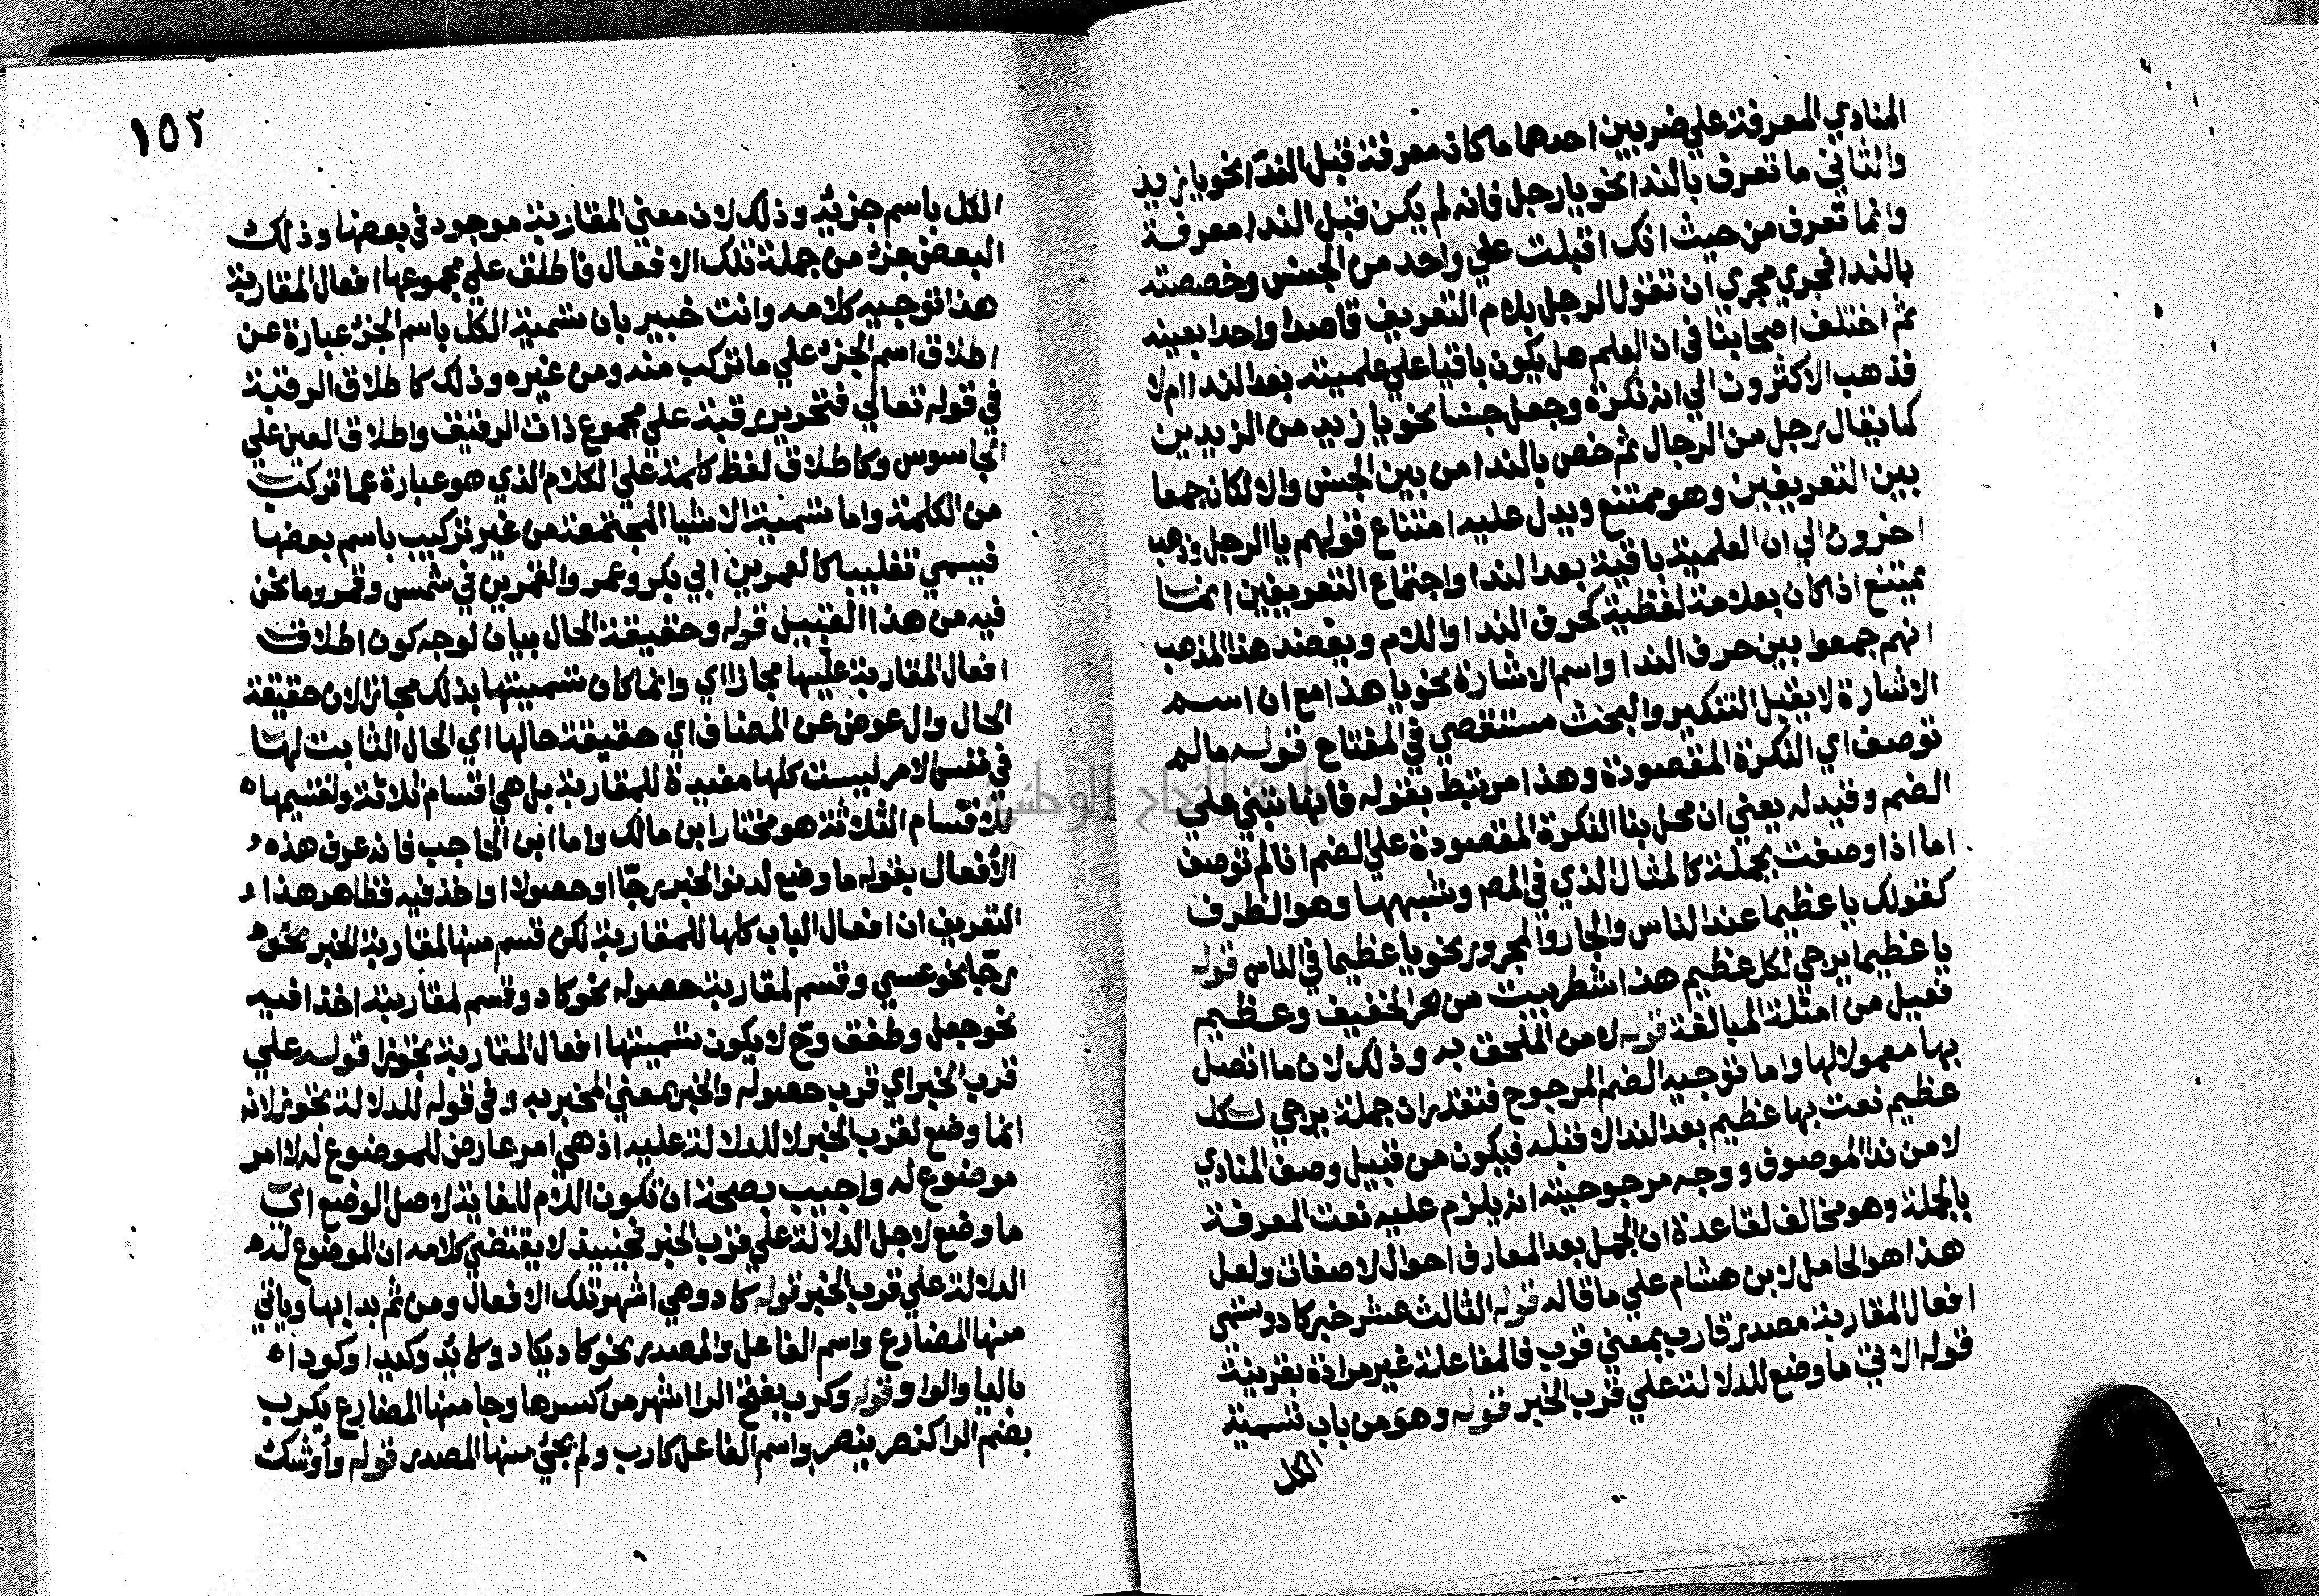 المنادي المعرفة علي ضربين احدهما ما كان معرفة قبل الندا نحو يا زيد
والثاني ما تعرف بالندا نحو يا رجل فانه لم يكن قبل الندا معرفة
وانما تعرف من حيث انك اقبلت علي واحد من الجنس وخصصته
بالندا فجري مجري ان تقول الرجل بلام التعريف قاصدا واحدا بعينه
ثم اختلف اصحابنا في ان العلم هل يكون باقيا علي علميته بعد الندا ام لا
فذهب الاكثرون الي انه نكرة وجعل جنسا نحو يا زيد من الزيدين
كما يقال رجل من الرجال ثم خص بالندا من بين الجنس والا لكان جمعا
بين التعريفين وهو ممتنع ويدل عليه امتناع قولهم يا الرجل وذهب
اخرون الي ان العلمية باقية بعد الندا واجتماع التعريفين انما
يمتنع اذا كان بعلامة لفظية كحرف الندا واللام ويعضد هذا المذهب
انهم جمعوا بين حرف الندا واسم الاشارة نحو يا هذا مع ان اسم
الاشارة لا يقبل التنكير والبحث مستقصي في المفتاح قوله ما لم
توصف اي النكرة المقصودة وهذا مرتبط بقوله فانها تبني علي
الضم وقيد له يعني ان محل بنا النكرة المقصودة علي الضم اذا لم توصف
اما اذا وصفت بجملة كالمثال الذي في المص وشبهها وهو الظرف
كقولك يا عظيما عند الناس والجار والمجرور نحو يا عظيما في الناس قوله
يا عظيما يرجي لكل عظيم هذا شطر بيت من بحر الخفيف وعظيم
فعيل من امثلة المبالغة قوله له من الملحق به وذلك لان ما اتصل
بها معمولا لها واما توجيه الضم المرجوح فتقدر ان جملة يرجي لكل
عظيم نعت بها عظيم بعد الندا لا قبله فيكون من قبيل وصف المنادي
لا من ندا الموصوف ووجه مرجوحيته انه يلزم عليه نعت المعرفة
بالجملة وهو مخالف لقاعدة ان الجمل بعد المعارف احوال لا صفات ولعل
هذا هو الحامل لابن هشام علي ما قاله قوله الثالث عشر خبر كاد وسمي
افعال المقاربة مصدر قارب بمعني قرب فالمفاعلة غير مرادة بقرينة
قوله الاتي ما وضع للدلالة علي قرب الخبر قوله وهو من باب تسمية
الكل
١٥٢
الكل باسم جزئه وذلك لان معني المقاربة موجود في بعضها وذلك
البعض جزء من جملة تلك الافعال فاطلق علي مجموعها افعال المقاربة
هذا توجيه كلامه وانت خبير بان تسمية الكل باسم الجزء عبارة عن
اطلاق اسم الجزء علي ما تركب منه ومن غيره وذلك كاطلاق الرقبة
في قوله تعالي فتحرير رقبة علي مجموع ذات الرقيق واطلاق العين علي
الجاسوس وكاطلاق لفظ كلمة علي الكلام الذي هو عبارة عما تركب
من الكلمة واما تسمية الاشيا المجتمعة من غير تركيب باسم بعضها
فيسمي تغليبا كالعمرين ابي بكر وعمر والقمرين في شمس وقمر وما نحن
فيه من هذا القبيل قوله وحقيقة الحال بيان لوجه كون اطلاق
افعال المقاربة عليها مجازا اي وانما كان تسميتها بذلك مجازا لان حقيقة
الحال وال عوض عن المضاف اي حقيقة حالها اي الحال الثابت لها
في نفس الامر ليست كلها مفيدة للمقاربة بل هي اقسام ثلاثة وتقسيمها
للاقسام الثلاثة هو مختار ابن مالك واما ابن الحاجب فانه عرف هذه
الأفعال بقوله ما وضع لدنو الخبر رجا او حصولا او اخذ فيه فظاهر هذا
التعريف ان افعال الباب كلها للمقاربة لكن قسم منها لمقاربة الخبر
رجّا نحو عسي وقسم لمقاربة حصوله نحو كاد وقسم لمقاربة اخذا فيه
نحو جعل وطفق وح لا يكون تسميتها افعال المقاربة تجوزا قوله علي
قرب الخبر اي قرب حصوله والخبر بمعني المخبر به وفي قوله للدلالة تجوز لانه
انما وضع لقرب الخبر لا للدلالة عليه اذ هي امر عارض للموضوع له لا امر
موضوع له واجيب بصحة ان تكون اللام للغاية لا وصل الوضع اي
ما وضع لاجل الدلالة علي قرب الخبر فحينيذ لا يقتضي كلامه ان الموضوع له
الدلالة علي قرب الخبر قوله كاد وهي اشهر تلك الافعال ومن ثم بدا بها وياتي
منها المضارع واسم الفاعل والمصدر نحو كاد يكاد وكايد وكيدا وكودا
باليا والواو قوله وكرب بفتح الرا اشهر من كسرها وجا منها المضارع يكرب
بضم الرا كنصر ينصر واسم الفاعل كارب ولم يجئ منها المصدر قوله وأوشك
جامعة النجاح الوطنية